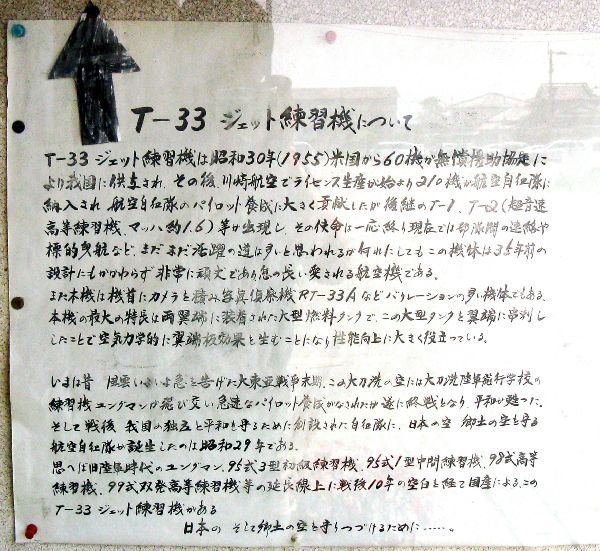 T-33 ジェット練習機について
T-33 ジェット練習機は昭和30年(1955)米国から60機が無償援助協定に
より我国に供与され、その後、川崎航空でライセンス生産が始まり210機が航空自衛隊に
納入され 航空自衛隊のパイロット養成に大きく貢献したが後継のT-1、T-2(超音速
高等練習機、マッハ約1.6)等が出現し、その使命は一応終り現在では部隊間の連絡や
標的曳航など、まだまだ活躍の道は多いと思われるが何れにしてもこの機体は35年前の
設計にもかかわらず非常に頑丈であり息の長い愛される航空機である。
また本機は機首にカメラを積み写真偵察機RT-33Aなどバリレーションの多い機体でもある。
本機の最大の特長は両翼端に装着された大型燃料タンクで、この大型タンクを翼端に串刺し
したことで空気力学的に翼端板効果を生むことになり性能向上に大きく役立っている。
いまは昔 風雲いよいよ急を告げた大東亜戦争末期、この大刀洗の空には大刀洗陸軍飛行学校の
練習機ユングマンが飛び交い急速なパイロット養成がなされたが遂に終戦となり、平和が甦った。
そして戦後 我国の独立と平和を守るために創設された自衛隊に、日本の空 郷土の空を守る
航空自衛隊が誕生したのは昭和29年である。
思へば旧陸軍時代のユングマン、95式3型初級練習機、95式1型中間練習機、98式高等
練習機、99式双発高等練習機等の延長線上に戦後10年の空白を経て国産による、この
T-33 ジェット練習機がある
日本の そして郷土の空を守りつづけるために……。